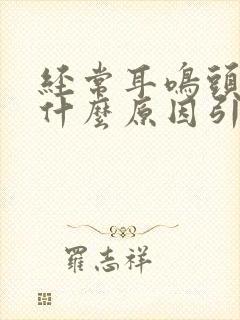 經常耳鳴頭
什麼原因引
羅志祥